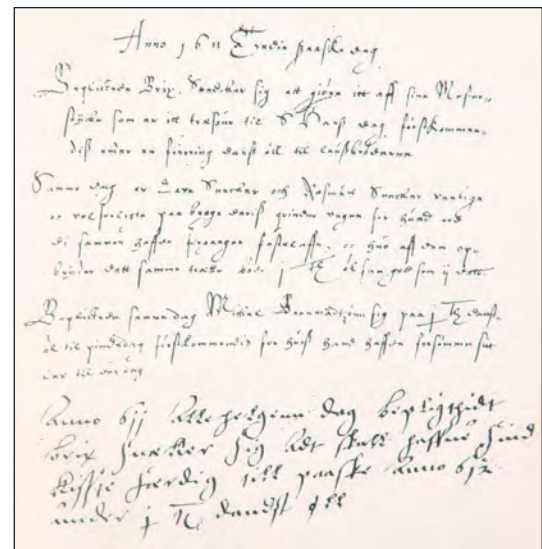 Anno 1611 Tredie paaske dag
Bepligtede Brix Snedker sig att giøre itt aff sine Mester
støcke som er itt tresur til S Hans dag, førstkommen
diß under en dansk øll til laugßbrøderne
Samme dag er Snecker och Rasmus Snecker venlige
oc vel forligte paa begge deris vegne for hues ord
di sammen haffde fastelaffn, oc huo aff dem op
bryder dett samme trette bøde j Tø øl saa god som ij
Bepligtede samme dag Mickel sig paa j Tø dansk
øl til pindsdag førstkommendis for huis hand haffde forsømmit sit
aar til
Anno 611 Alle helgenn dag bepligthidt
brix snecker sig adt skulle haffue sind
kiste ferdig till paaske Anno 612
under j Tø danst øll